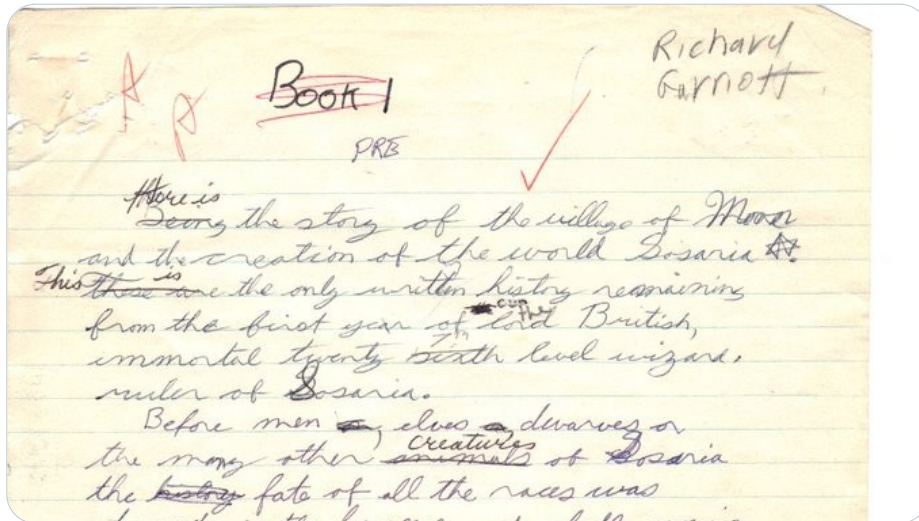 Richard
Garriott
A
A
Book 1
PRE
Here is
Being the story of the village of Moon
and the creation of the world Sosaria
This is
these are the only written history remaining
from the first year of lord British,
immortal twenty sixth level wizard,
ruler of Sosaria.
Before men, elves dwarves or
creatures
the many other animals of Sosaria
the history fate of all the races was